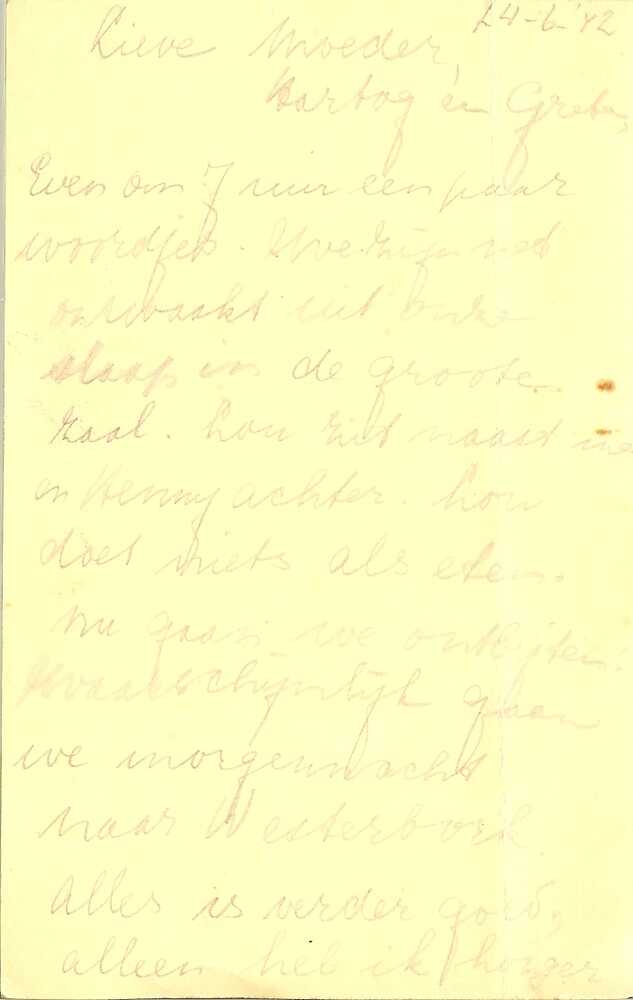 24-6-'42
Lieve Moeder,
Hartog en Greta,
Even om 7 uur een paar
woordjes. We zijn net
ontwaakt uit onze
slaap in de groote
zaal. Lou zit naast me
en Henny achter. Lou
doet niets als eten.
Nu gaan we ontbijten.
Waarschijnlijk gaan
we morgennacht
naar Westerbork.
Alles is verder goed,
alleen heb ik honger